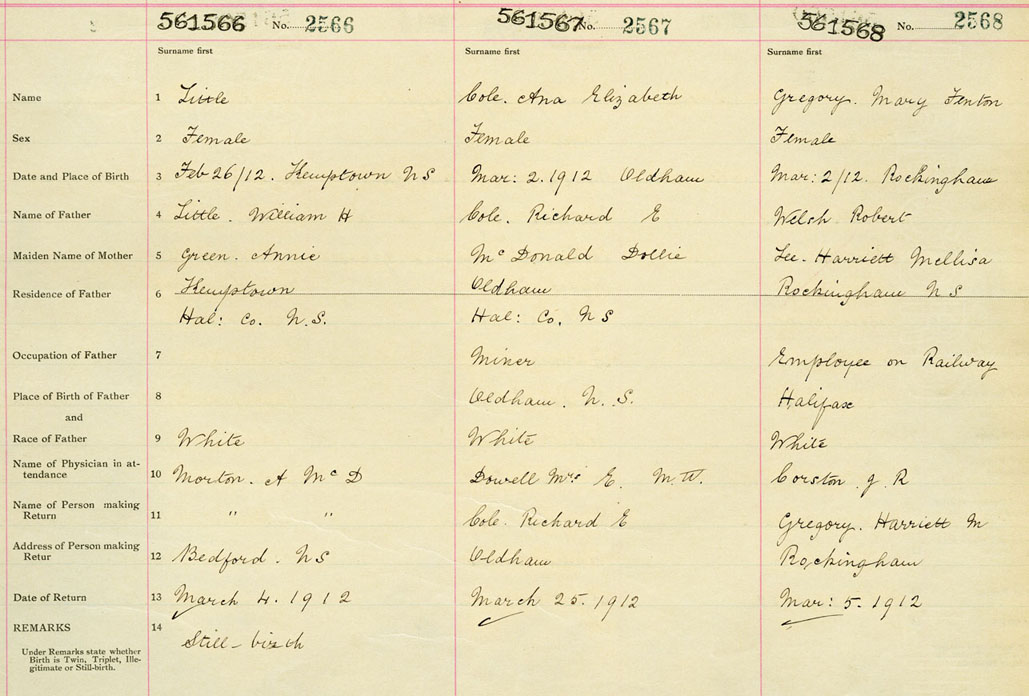 561566 No. 2566 561567 No. 2567 561568 No. 2568
Surname first Surname first Surname first
Name 1 Little Cole. Ana Elizabeth Gregory. Mary Fenton
Sex 2 Female Female Female
Date and Place of Birth 3 Feb 26/12. Kemptown NS Mar: 2. 1912 Oldham Mar: 2/12. Rockingham
Name of Father 4 Little. William H Cole. Richard E Welsh Robert
Maiden Name of Mother 5 Green. Annie McDonald Dollie Lee. Harriett Mellisa
Residence of Father 6 Kemptown Oldham Rockingham NS
Hal: Co. N.S. Hal: Co. NS
Occupation of Father 7 Miner Employee on Railway
Place of Birth of Father 8 Oldham. N.S. Halifax
and
Race of Father 9 White White White
Name of Physician in at-
tendance 10 Morton. A McD Dowell Mrs E. M.W. Corston J. R
Name of Person making
Return 11 " " Cole. Richard E Gregory. Harriett M
Address of Person making
Retur 12 Bedford. NS Oldham Rockingham
Date of Return 13 March 4. 1912 March 25. 1912 Mar: 5. 1912
REMARKS 14 Still-birth
Under Remarks state whether
Birth is Twin, Triplet, Ille-
gitimate or Still-birth.